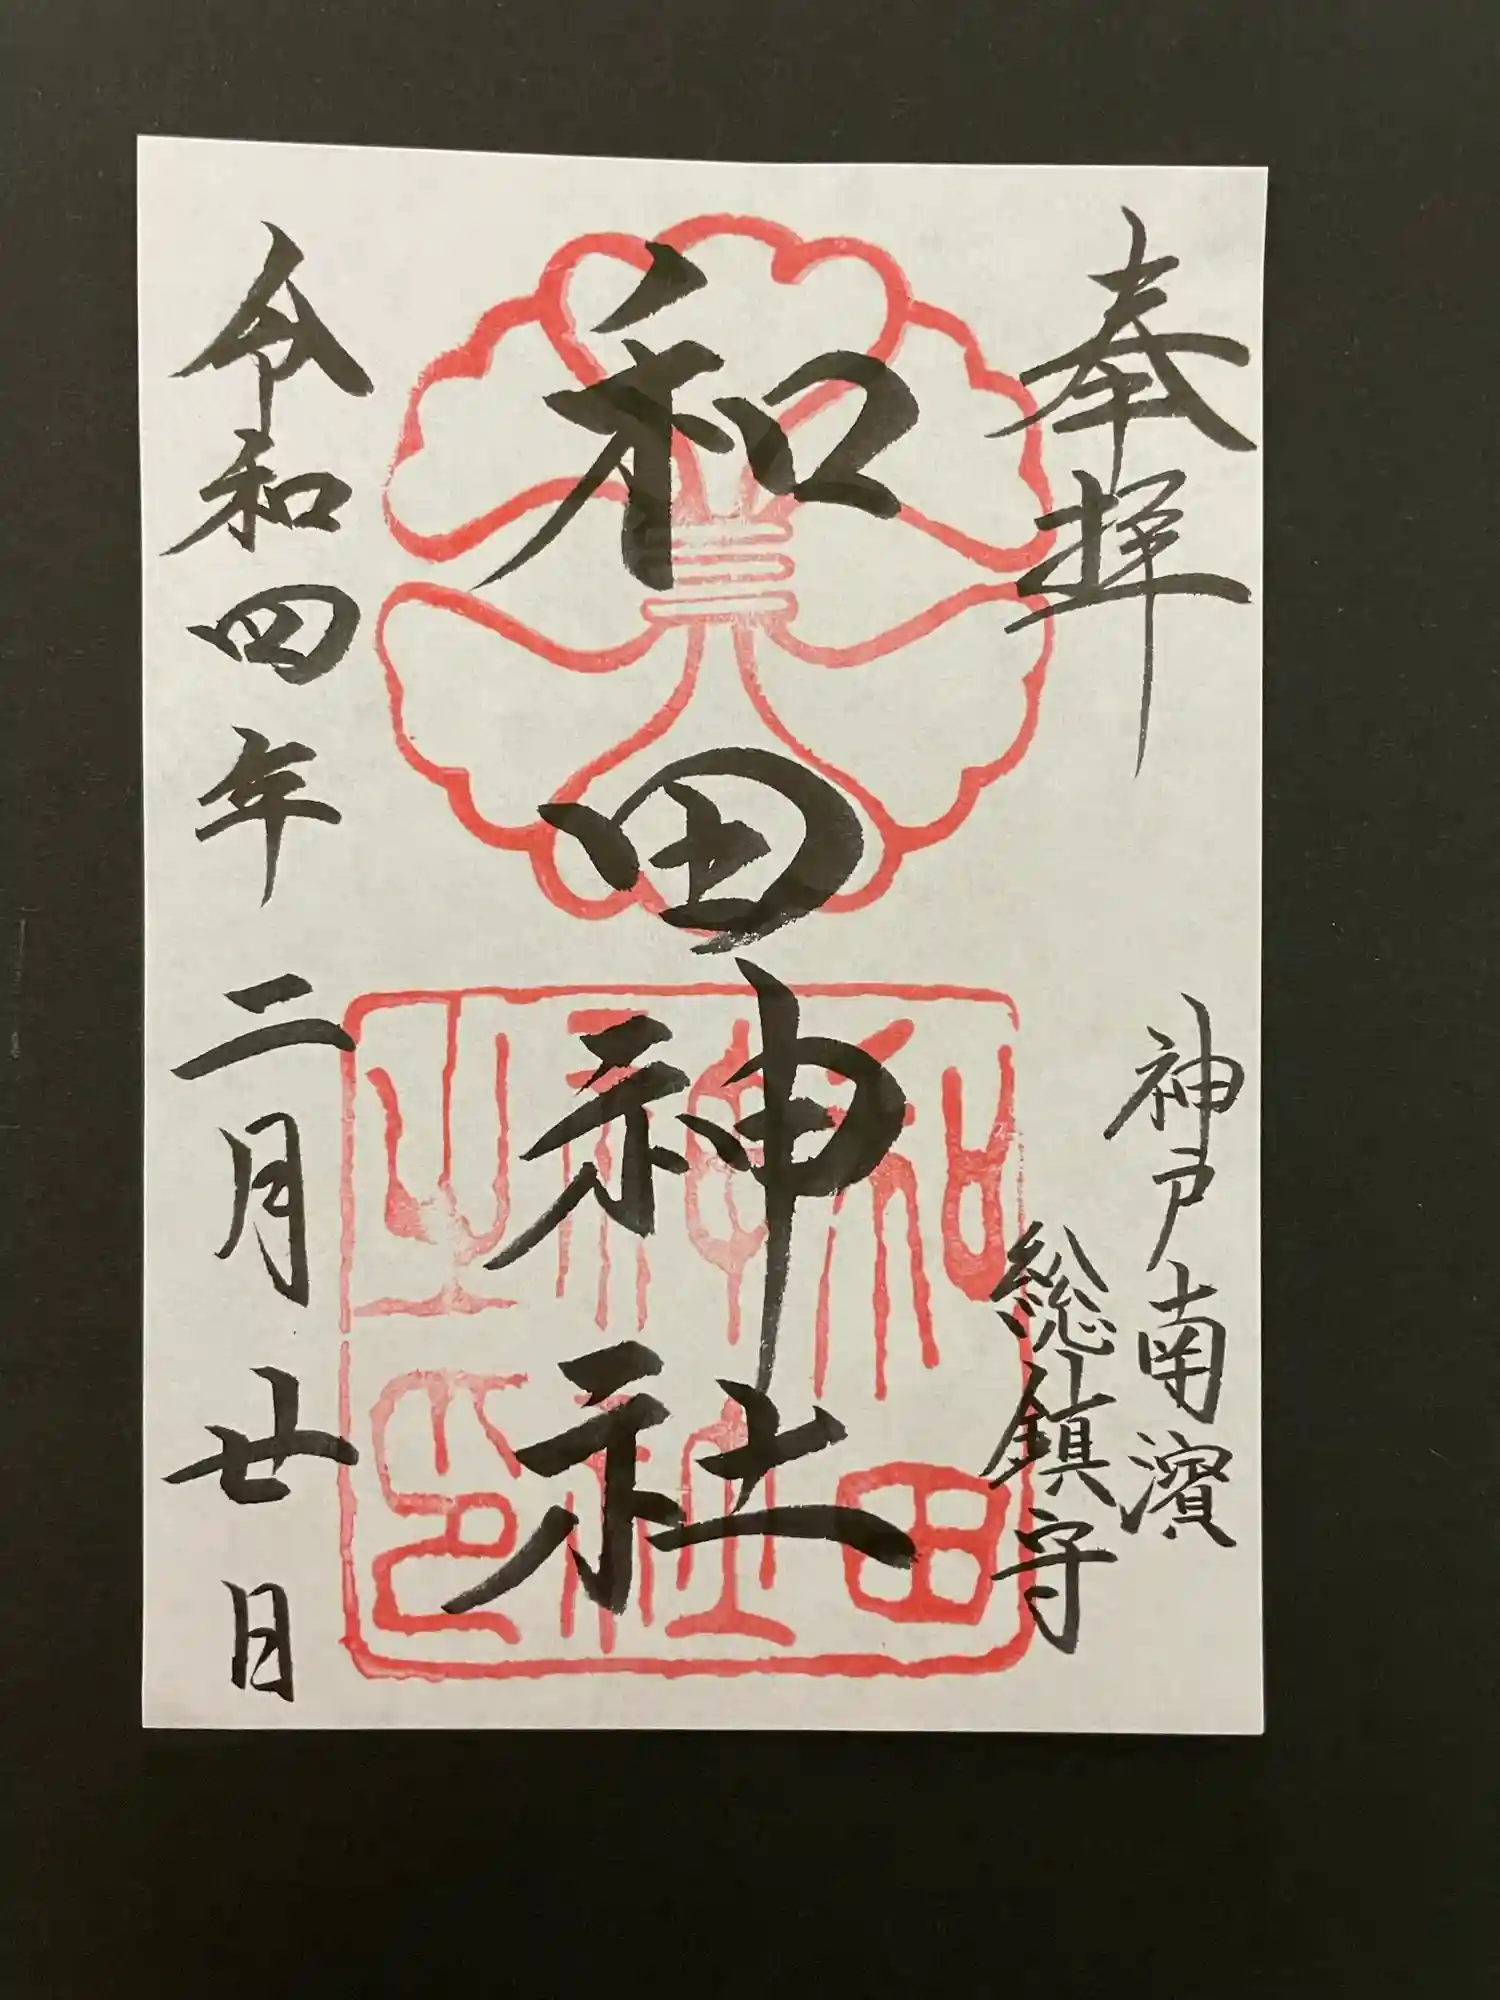 奉拝
神戸南濱
総鎮守
和田神社
令和四年二月廿日
和田
神社
之印